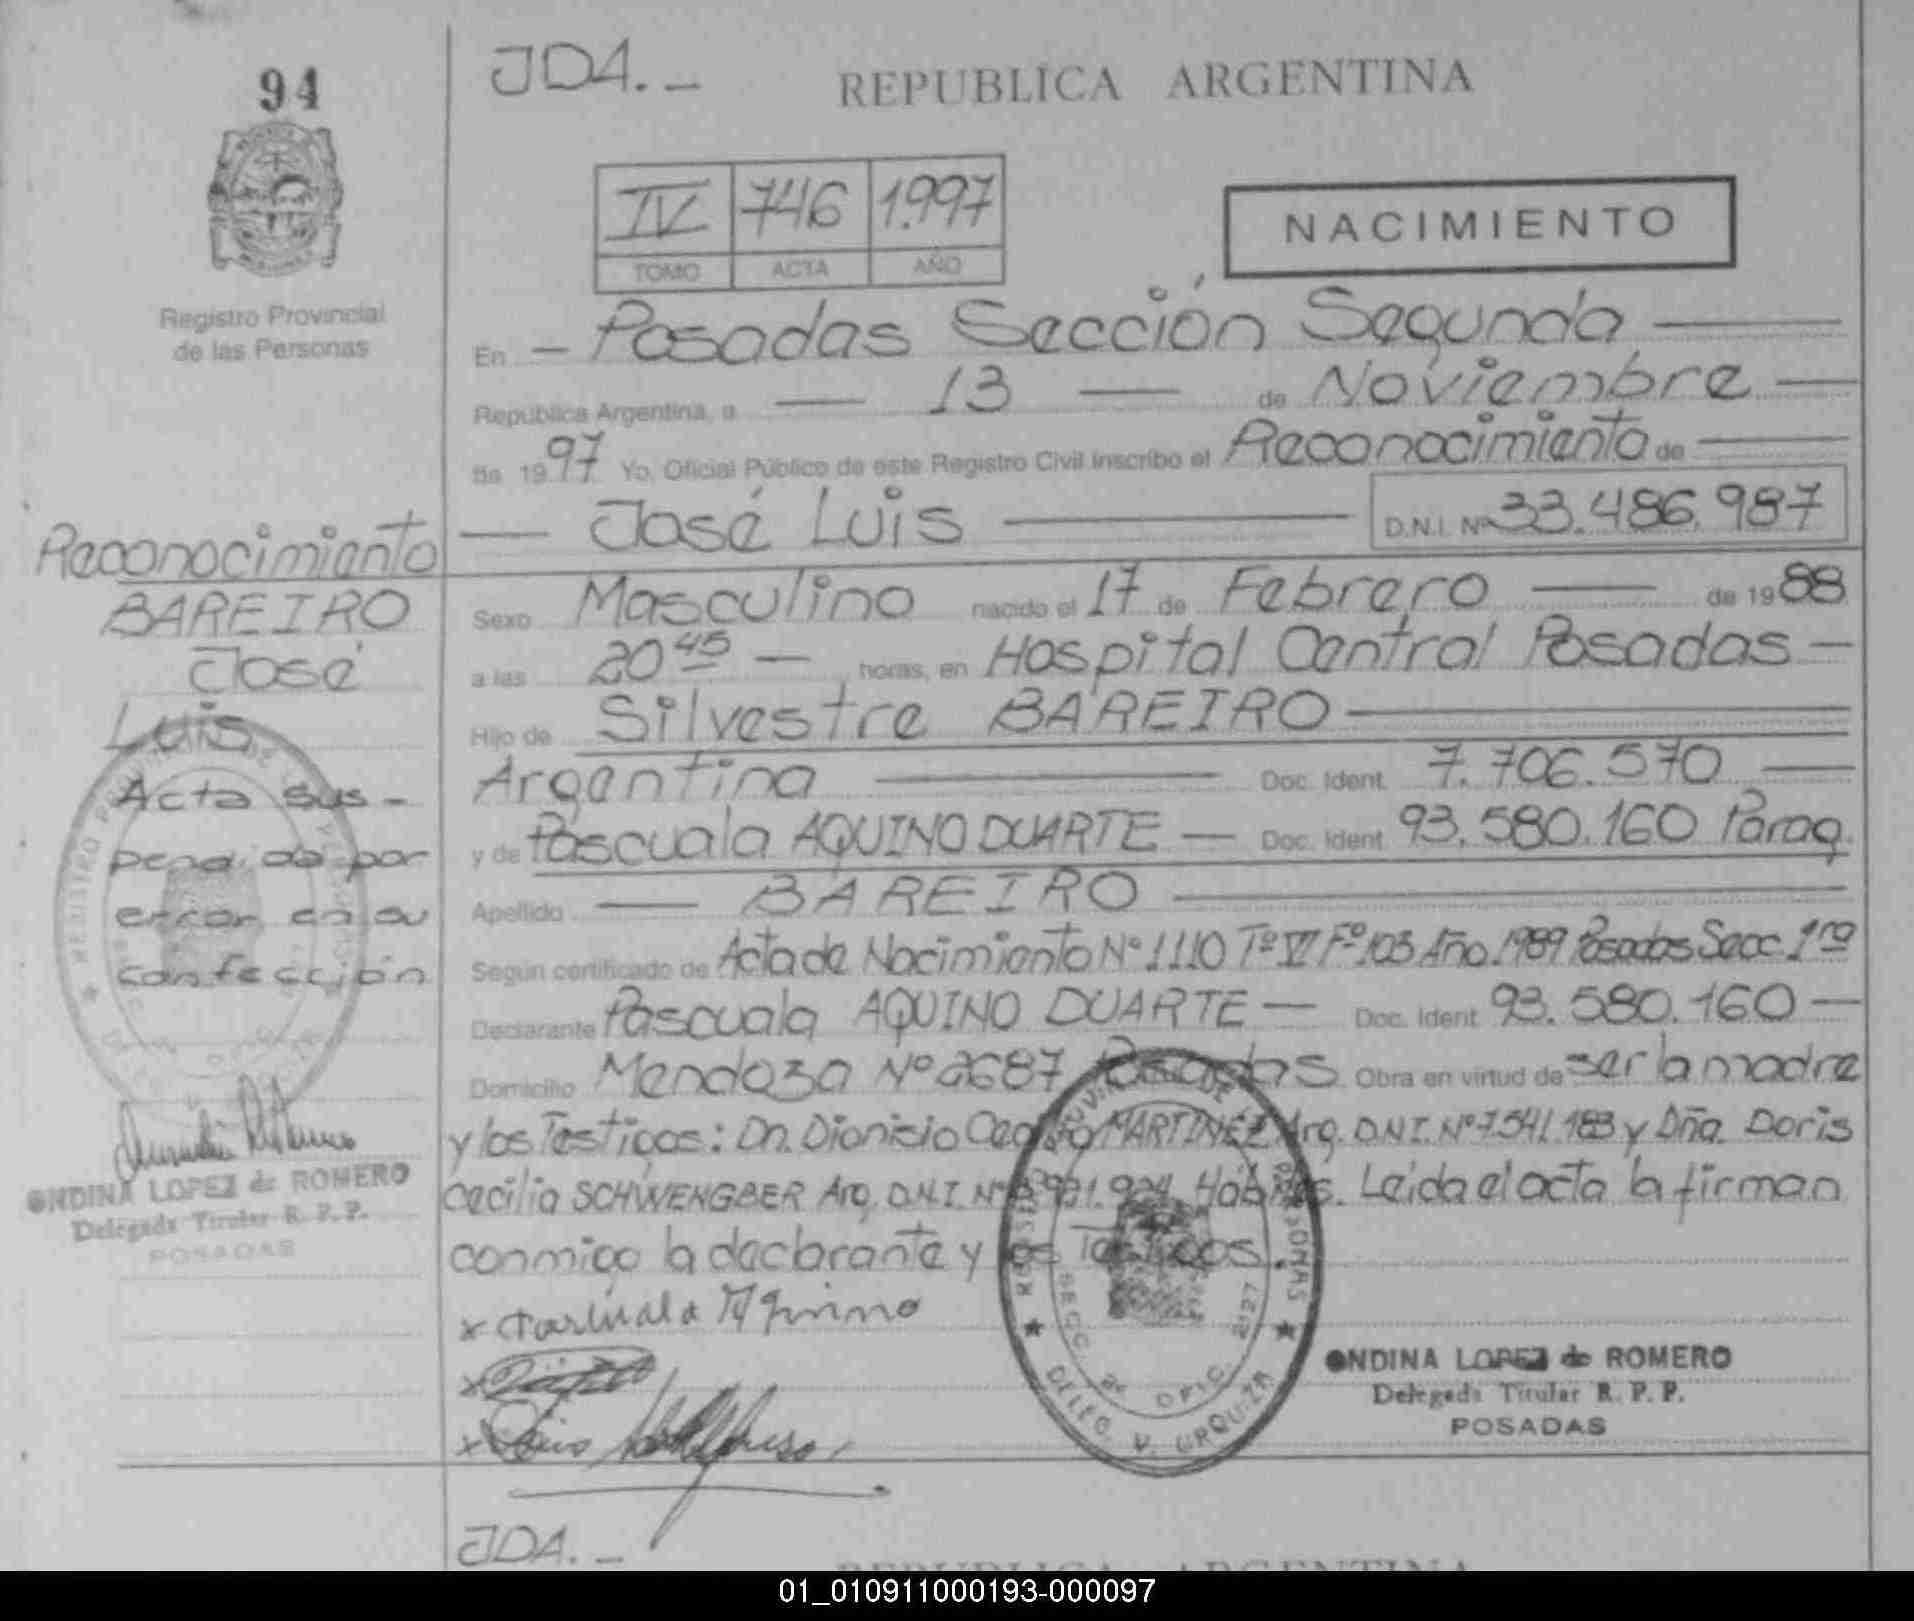 94
JDA.-
REPUBLICA ARGENTINA
IV 746 1.997
TOMO ACTA AÑO
NACIMIENTO
Registro Provincial
de las Personas
En - Posadas Sección Segunda
República Argentina, a 13 de Noviembre
de 1997 Yo, Oficial Público de este Registro Civil inscribo el Reconocimiento de
José Luis D.N.I. Nº 33.486.987
Sexo Masculino nacido el 17 de Febrero de 1988
a las 20 45 - horas, en Hospital Central Posadas -
Hijo de Silvestre BAREIRO
Argentina Doc. Ident. 7.706.570
y de Pascuala AQUINO DUARTE - Doc. Ident. 93.580.160 Parag.
Apellido BAREIRO
Según certificado de Acta de Nacimiento Nº 1110 Tº VI Fº 103 Año 1989 Posadas Secc. 1ra
Declarante Pascuala AQUINO DUARTE - Doc. Ident. 93.580.160 -
Domicilio Mendoza Nº 2687 Posadas Obra en virtud de ser la madre
y los Testigos: Dn. Dionisio MARTINEZ Arg. D.N.I. Nº 7.541.183 y Dña. Doris
Cecilia SCHWENGBER Arg. D.N.I. Nº Hábiles. Leída el acta la firman
conmigo la declarante y los Testigos.
x Pascuala Aquino
x
x
Reconocimiento
BAREIRO
José
Luis
Acta sus-
pendida por
error en su
confección
ONDINA LOPEZ de ROMERO
Delegada Titular R. P. P.
POSADAS
REGISTRO PROVINCIAL DE LAS PERSONAS
SECC. 2ª OFIC. 2127
DELEG. V. URQUIZA
ONDINA LOPEZ de ROMERO
Delegada Titular R. P. P.
POSADAS
JDA.-
REPUBLICA ARGENTINA
01_010911000193-000097